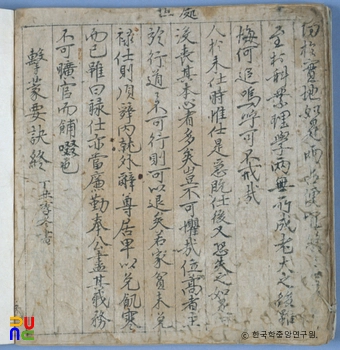 處世
至於科業理學兩無所成老大之後雖
悔何追嗚呼可不戒哉
人於未仕時惟仕是急既仕後又恐失之如是
沒喪其本心者多矣豈不可懼哉位高者主
於行道道不可行則可以退矣若家貧未免
祿仕則須辭內就外辭尊居卑以免飢寒
而已雖曰祿仕亦當廉勤奉公盡其職務
不可曠官而餔啜也
擊蒙要訣終
© 한국학중앙연구원